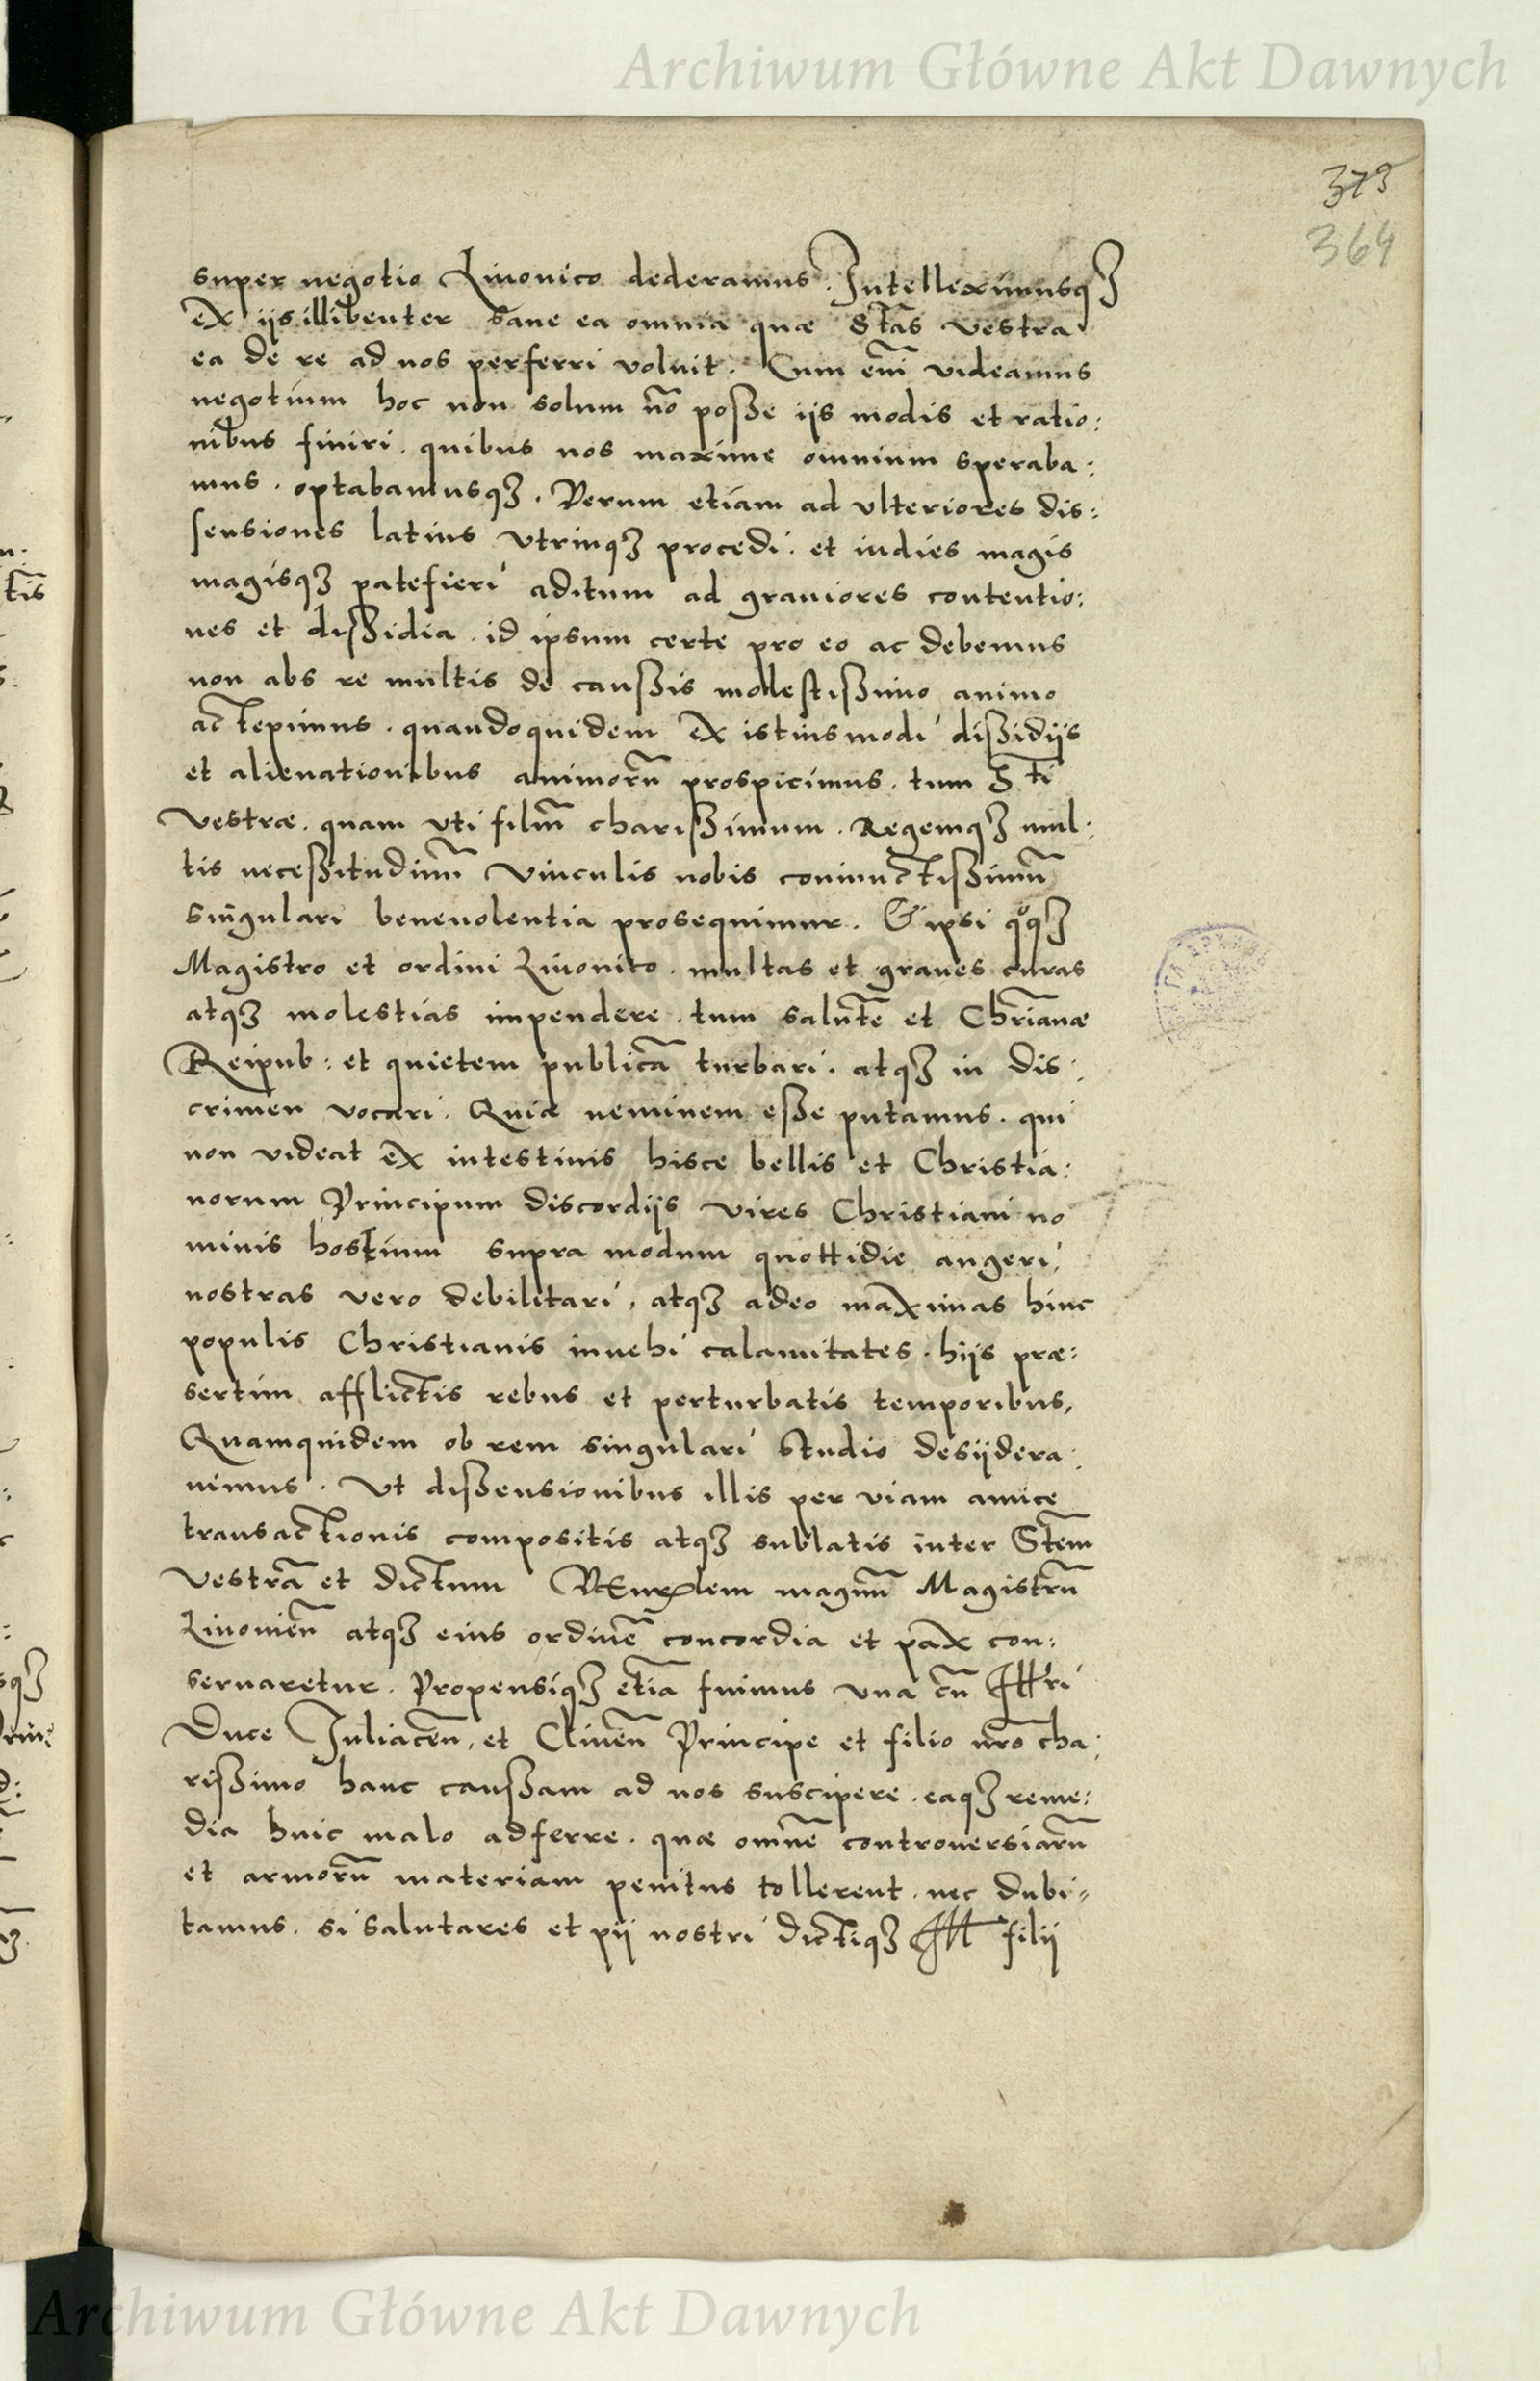 Archiwum Główne Akt Dawnych
373
364
super negotio Liuonico dederamus. Intelleximusqꝫ
ex iis illibenter sane ea omnia quæ Stas̃ vestra
ea de re ad nos perferri voluit. Cum em̃ videamus
negotium hoc non solum nõ posse iis modis et ratio:
nibus finiri. quibus nos maxime omnium speraba:
mus. optabamusqꝫ. Verum etiam ad vlteriores dis:
sensiones latius vtrinqꝫ procedi. et indies magis
magisqꝫ patefieri aditum ad grauiores contentio:
nes et dissidia. id ipsum certe pro eo ac debemus
non abs re multis de caussis molestissimo animo
accepimus. quandoquidem ex istiusmodi dissidijs
et alienationibus animorũ prospicimus. tum Sti
vestræ. quam vti filiũ charissimum. Regemqꝫ mul:
tis necessitudinũ vinculis nobis coniunctissimũ
singulari beneuolentia prosequimur. Et ipsi qͦqꝫ
Magistro et ordini Liuonico. multas et graues curas
atqꝫ molestias impendere. tum salutẽ et Chrĩanæ
Reipub: et quietem publicã turbari. atqꝫ in dis:
crimen vocari. Quia neminem esse putamus. qui
non videat ex intestinis hisce bellis et Christia:
norum Principum discordijs vires Christiani no
minis hostium supra modum quottidie augeri,
nostras vero debilitari, atqꝫ adeo maximas hinc
populis Christianis inuehi calamitates. hijs præ:
sertim afflictis rebus et perturbatis temporibus,
Quamquidem ob rem singulari studio desijdera:
uimus. Vt dissensionibus illis per viam amicę
transactionis compositis atqꝫ sublatis inter Stem̃
Vestrã et dictum magnũ Magistrũ
Liuonieñ atqꝫ eius ordinẽ concordia et pax con:
seruaretur. Propensiqꝫ etiã fuimus vna cũ Illri
Duce Iuliaceñ, et Cliueñ Principe et filio nrõ cha:
rissimo hanc caussam ad nos suscipere. eaqꝫ reme:
dia huic malo adferre. quæ omnẽ controuersiarũ
et armorũ materiam penitus tollerent. nec dubi:
tamus. si salutares et pij nostri dictiqꝫ Ill filij
Archiwum Główne Akt Dawnych